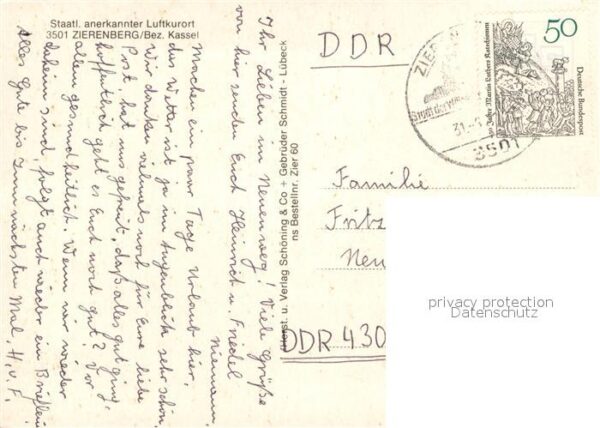 Staatl. anerkannter Luftkurort
3501 ZIERENBERG/Bez. Kassel
Ihr Lieben im Neuenweg! Viele Grüße
von hier senden Euch Heinrich u. Friedel
Niemann.
Machen ein paar Tage Urlaub hier,
das Wetter ist ja im Augenblick sehr schön.
Wir danken vielmals noch für Eure liebe
Post, hat uns gefreut, daß alles gut ging,
hoffentlich geht es Euch noch gut? Vor
allem gesundheitlich. Wenn wir wieder
daheim sind, folgt auch wieder ein Brieflein.
Alles Gute bis zum nächsten Mal. H. u. F.
u. Verlag Schöning & Co + Gebrüder Schmidt - Lübeck
ns Bestellnr. Zier 60
DDR
ZIER
Stadt der
31.
3501
50
Deutsche Bundespost
Jahre Martin Luthers Katechismus
Familie
Fritz
Neu
DDR 430
privacy protection
Datenschutz